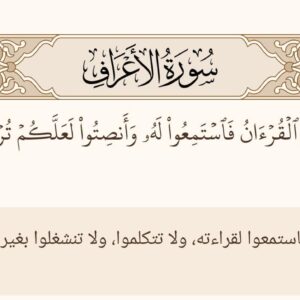 سُورَةُ الأَعْرَافِ
ٱلْقُرْءَانُ فَٱسْتَمِعُوا۟ لَهُۥ وَأَنصِتُوا۟ لَعَلَّكُمْ
استمعوا لقراءته، ولا تتكلموا، ولا تنشغلوا بغير